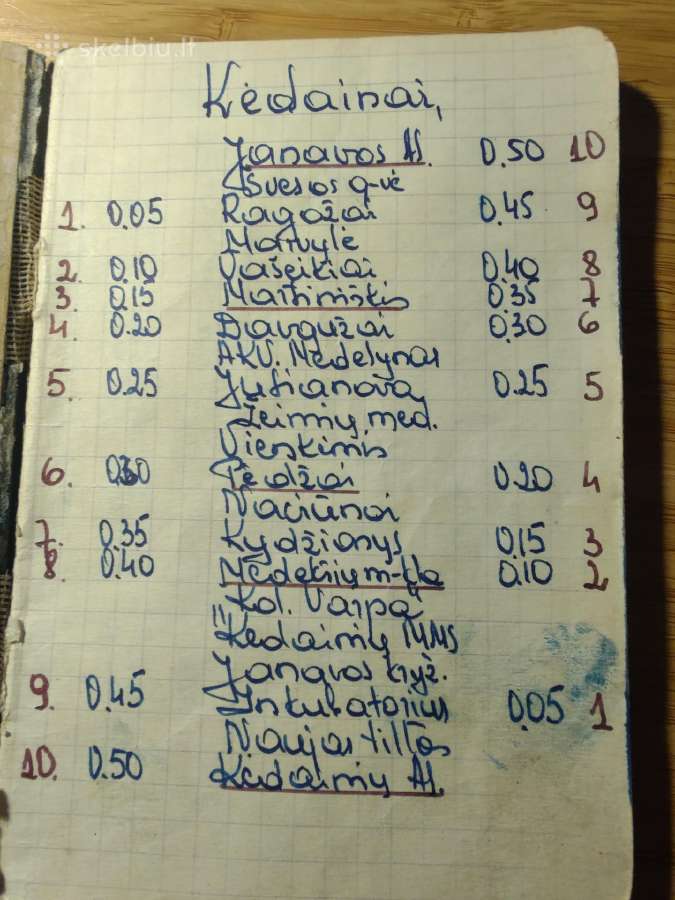 skelbiu.lt
Kėdainai,
Janavos AS. 0.50 10
Šviesos g-vė
1. 0.05 Ragožiai 0.45 9
Marvylė
2. 0.10 Vaseikiai 0.40 8
3. 0.15 Maitiniškis 0.35 7
4. 0.20 Daugužiai 0.30 6
AKV. Medelynas
5. 0.25 Justinava 0.25 5
Žeimių med.
Vieškimis
6. 0.30 Pėdžiai 0.20 4
Naciūnai
7. 0.35 Kydžionys 0.15 3
8. 0.40 0.10 2
Kol. Varpa
" Kėdainių MMS
Janavos kryž.
9. 0.45 Inkubatorius 0.05 1
Naujas tiltas
10. 0.50 Kėdainių AS.